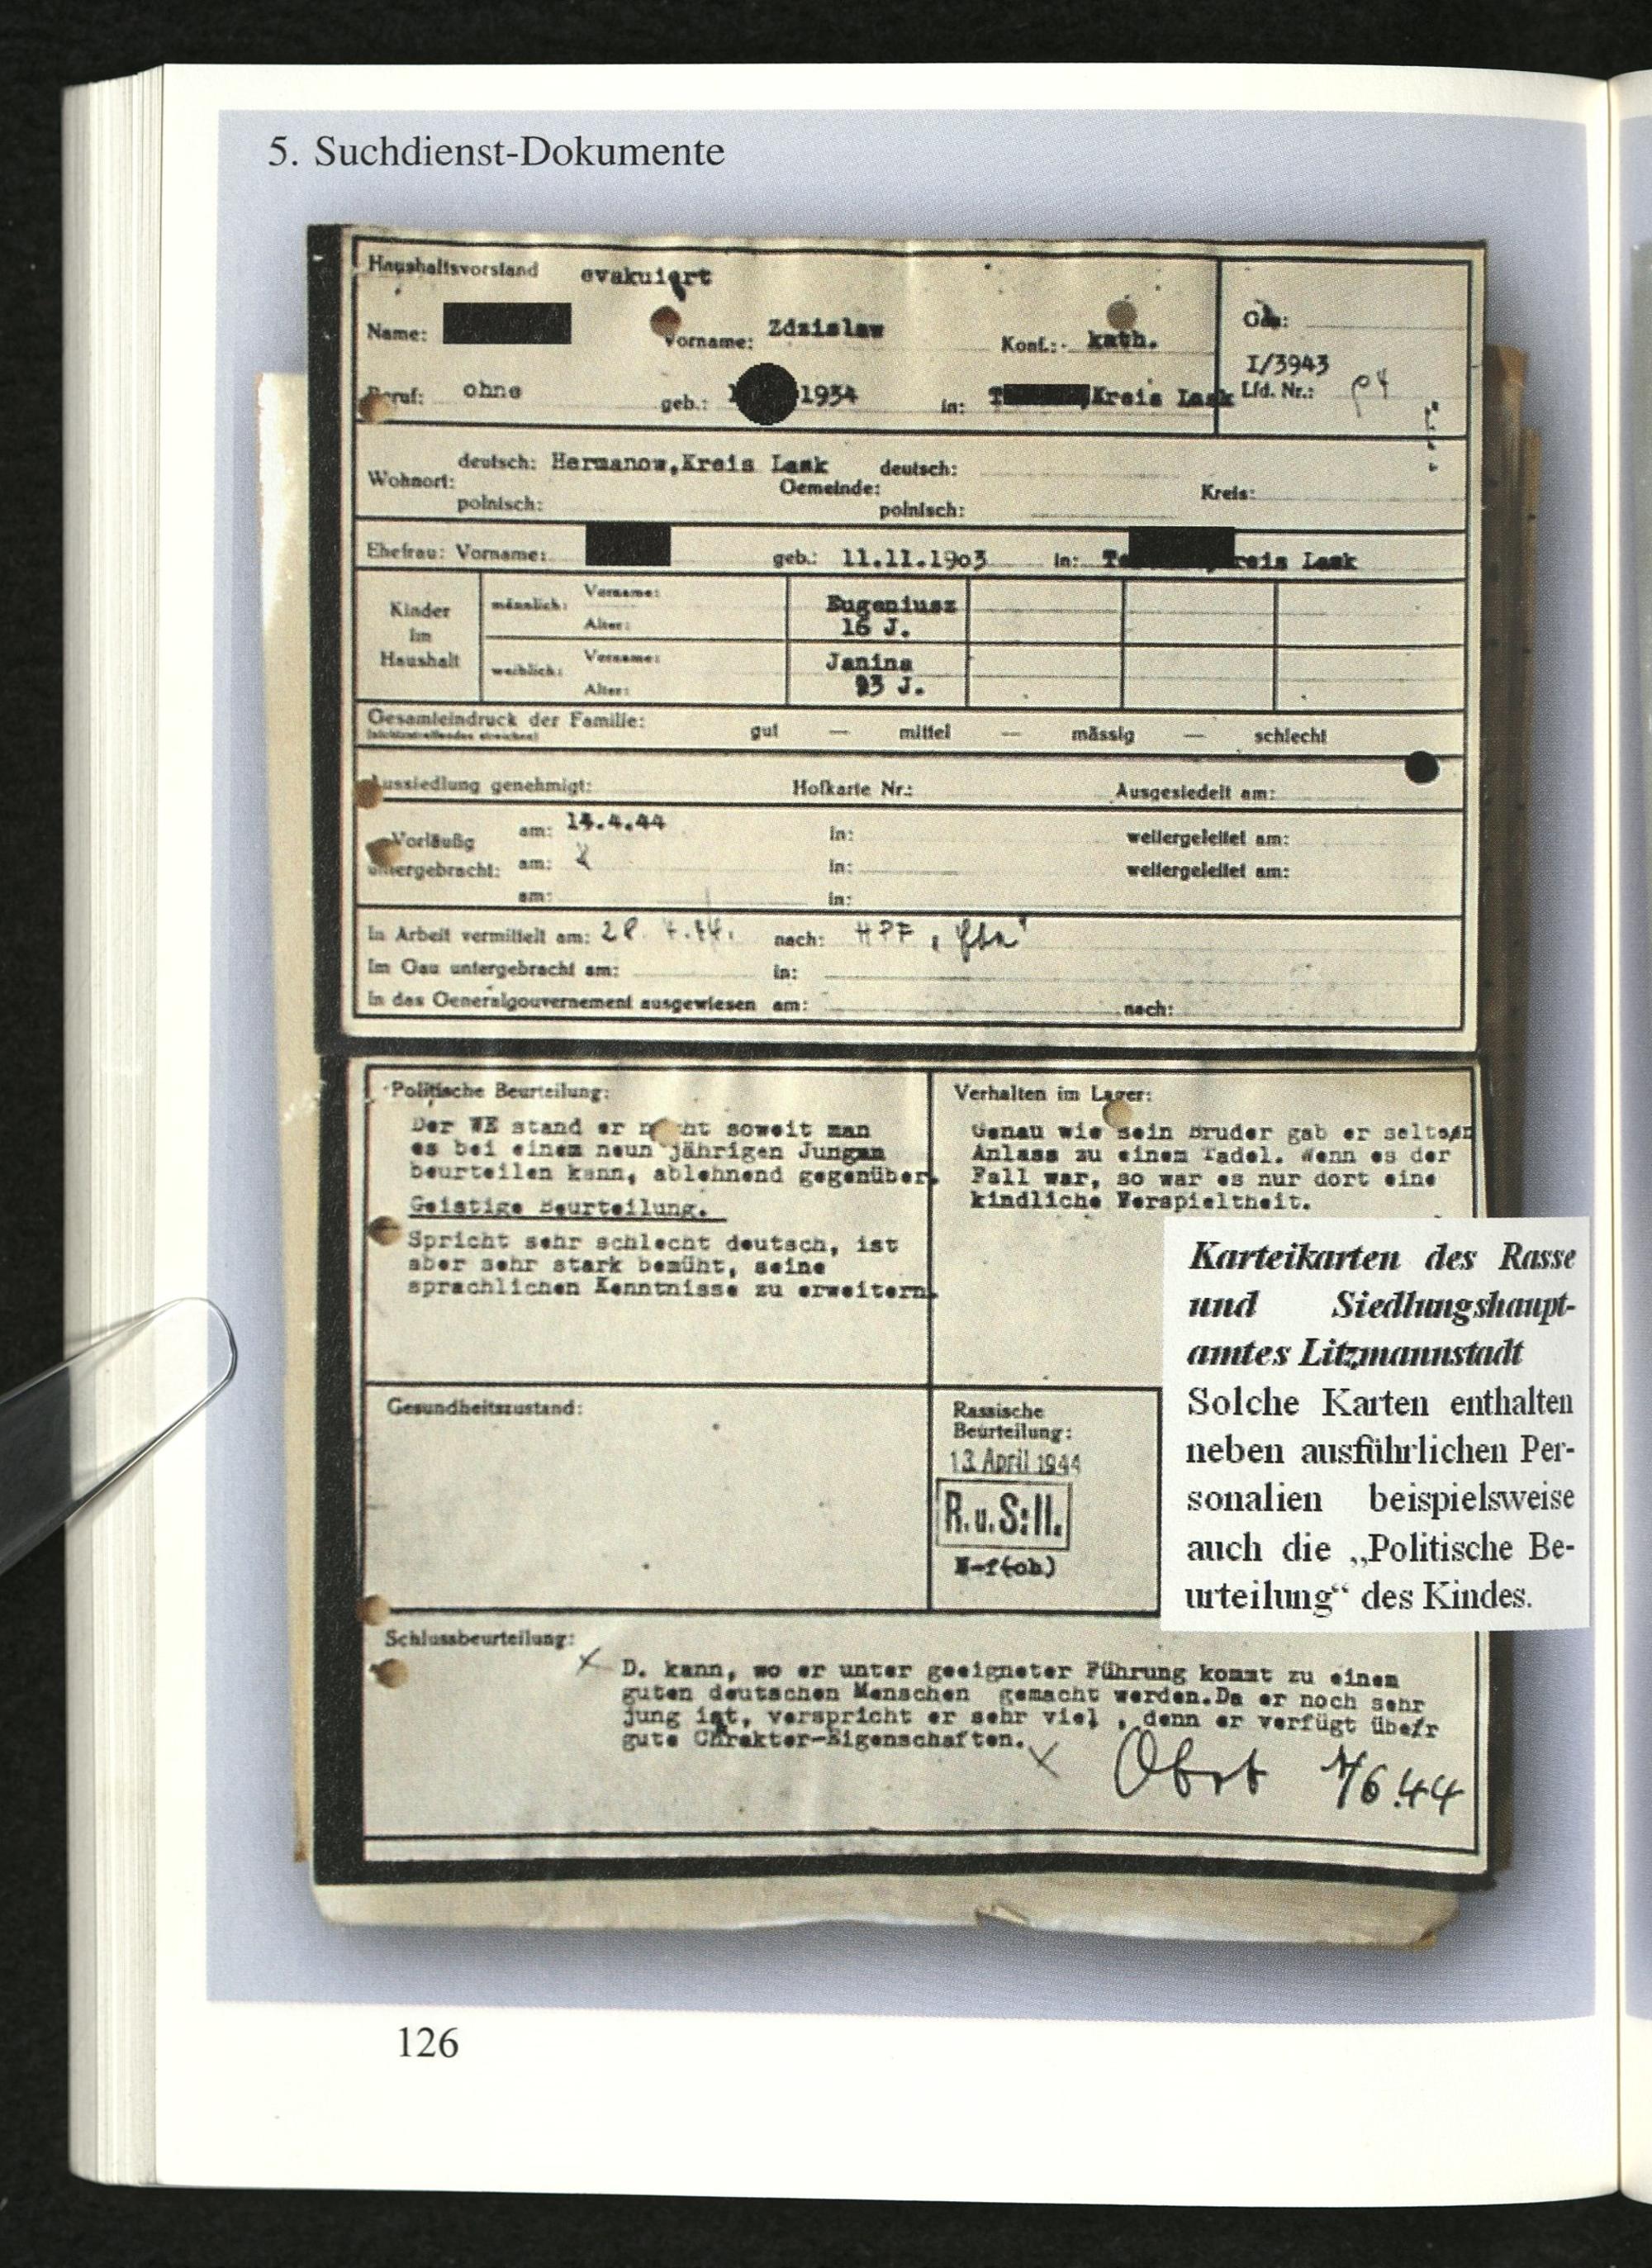 5. Suchdienst-Dokumente
Haushaltsvorstand evakuiert
Name: Vorname: Zdzislaw Konf.: kath.
I/3943
Beruf: ohne geb.: 1934 in: T Kreis Lask Lfd. Nr.:
Wohnort: deutsch: Hermanow,Kreis Lask Gemeinde: deutsch: Kreis:
polnisch: polnisch:
Ehefrau: Vorname: geb.: 11.11.1903 in: Kreis Lask
Kinder im Haushalt
männlich: Vorname: Eugeniusz
Alter: 16 J.
weiblich: Vorname: Janina
Alter: J.
Gesamteindruck der Familie: gut — mittel — mässig — schlecht
(nichtzutreffendes streichen)
Aussiedlung genehmigt: Hofkarte Nr.: Ausgesiedelt am:
Vorläufig untergebracht: am: 14.4.44 in: weitergeleitet am:
am: in: weitergeleitet am:
am: in:
In Arbeit vermittelt am: nach:
Im Gau untergebracht am: in:
In das Generalgouvernement ausgewiesen am: nach:
Politische Beurteilung:
Der WE stand er nicht soweit man
es bei einem neun jährigen Jungen
beurteilen kann, ablehnend gegenüber.
Geistige Beurteilung.
Spricht sehr schlecht deutsch, ist
aber sehr stark bemüht, seine
sprachlichen Kenntnisse zu erweitern.
Verhalten im Lager:
Genau wie sein Bruder gab er selten
Anlass zu einem Tadel. Wenn es der
Fall war, so war es nur dort eine
kindliche Verspieltheit.
Gesundheitszustand:
Rassische
Beurteilung:
13. April 1944
R.u.S:II.
Schlussbeurteilung:
D. kann, wo er unter geeigneter Führung kommt zu einem
guten deutschen Menschen gemacht werden.Da er noch sehr
jung ist, verspricht er sehr viel , denn er verfügt über
gute Charakter-Eigenschaften.
Karteikarten des Rasse
und Siedlungshaupt-
amtes Litzmannstadt
Solche Karten enthalten
neben ausführlichen Per-
sonalien beispielsweise
auch die „Politische Be-
urteilung“ des Kindes.
126